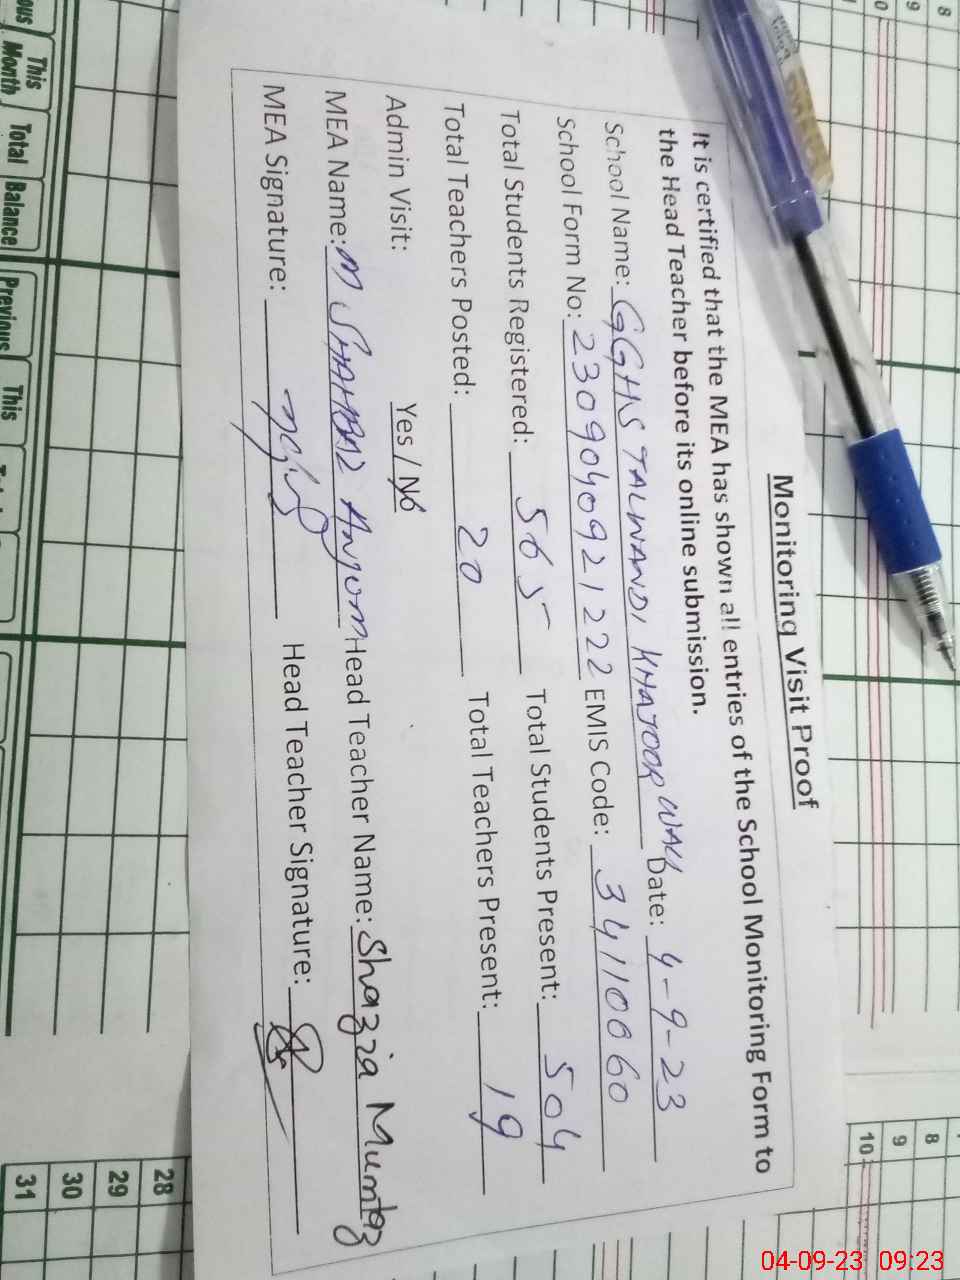 Monitoring Visit Proof
It is certified that the MEA has shown all entries of the School Monitoring Form to
the Head Teacher before its online submission.
School Name: GGHS TALWANDI KHAJOOR WALI Date: 4-9-23
School Form No: 2309040921222 EMIS Code: 34110060
Total Students Registered: 565 Total Students Present: 504
Total Teachers Posted: 20 Total Teachers Present: 19
Admin Visit: Yes / No
MEA Name: M SHAHBAZ Anjom Head Teacher Name: Shazia Mumtaz
MEA Signature: Head Teacher Signature:
This Month
Total
Balance
Previous
This
8
9
10
8
9
10
28
29
30
31
04-09-23 09:23